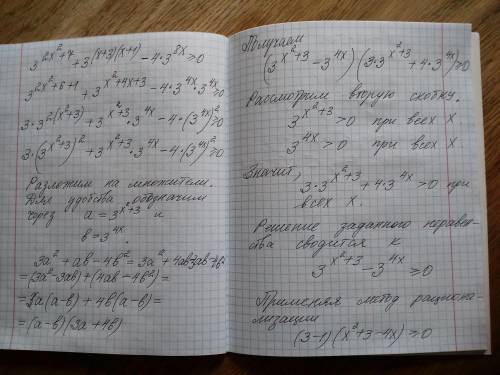 3^{2x²+7} + 3^{(x+3)(x+1)} - 4·3^{8x} ≥ 0
3^{2x²+6+1} + 3^{x²+4x+3} - 4·3^{4x}·3^{4x} ≥ 0
3·3^{2(x²+3)} + 3^{x²+3}·3^{4x} - 4·(3^{4x})² ≥ 0
3·(3^{x²+3})² + 3^{x²+3}·3^{4x} - 4·(3^{4x})² ≥ 0
Разложим на множители.
Для удобства обозначим
через a = 3^{x²+3} и
b = 3^{4x}.
3a² + ab - 4b² = 3a² + 4ab - 3ab - 4b² =
= (3a² - 3ab) + (4ab - 4b²) =
= 3a(a-b) + 4b(a-b) =
= (a-b)(3a+4b)
Получаем
(3^{x²+3} - 3^{4x})(3·3^{x²+3} + 4·3^{4x}) ≥ 0
Рассмотрим вторую скобку.
3^{x²+3} > 0 при всех X
3^{4x} > 0 при всех X.
Значит,
3·3^{x²+3} + 4·3^{4x} > 0 при
всех X.
Решение заданного неравен-
ства сводится к
3^{x²+3} - 3^{4x} ≥ 0
Применяя метод рациона-
лизации
(3-1)(x²+3-4x) ≥ 0